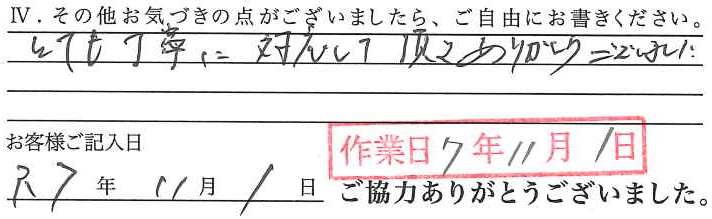 Ⅳ．その他お気づきの点がございましたら、ご自由にお書きください。
とても丁寧に対応して頂きありがとうございました
お客様ご記入日
作業日7年11月1日
R7年11月1日 ご協力ありがとうございました。